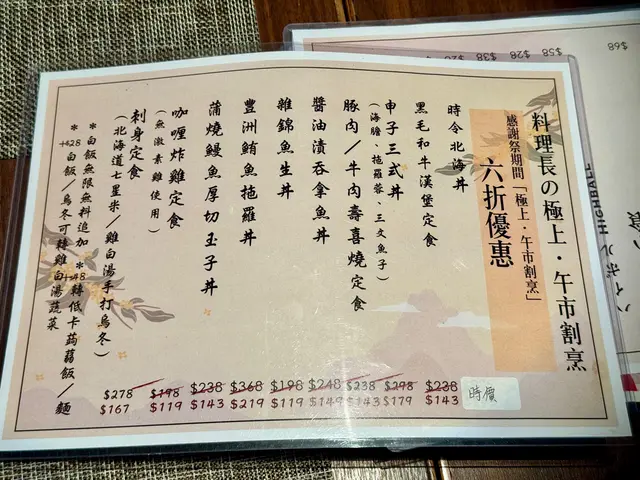 料理長の極上・午市割烹
感謝祭期間「極上・午市割烹」
六折優惠
時令北海丼
時價
黑毛和牛漢堡定食
$238
$143
申子三式丼
(海膽、拖羅蓉、三文魚子)
$298
$179
豚肉/牛肉壽喜燒定食
$238
$143
醬油漬吞拿魚丼
$248
$149
雜錦魚生丼
$198
$119
豐洲鮪魚拖羅丼
$368
$219
蒲燒鰻魚厚切玉子丼
$238
$143
咖喱炸雞定食
(無激素雞使用)
$198
$119
刺身定食
(北海道七星米/雞白湯手打烏冬)
$278
$167
*白飯無限無料追加 *+$48轉低卡蒟蒻飯/麵
*+$28白飯/烏冬可轉雞白湯蔬菜
$68
$58
$28
$38
ハイボール HIGHBALL